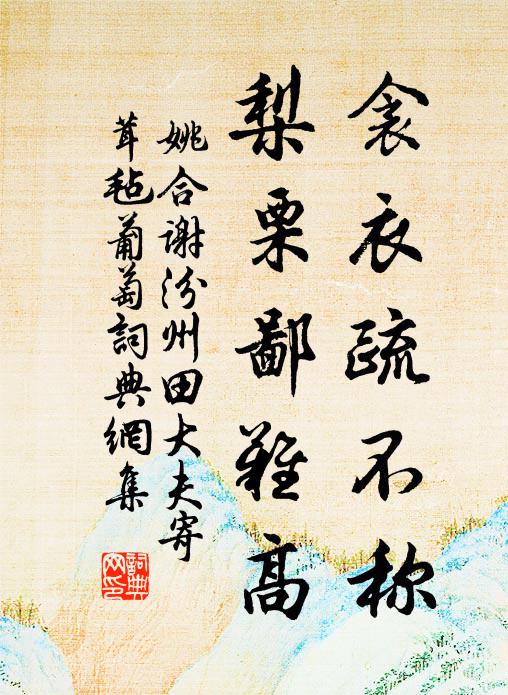 衾衣疏不称
梨栗鄙難高
姚合谢汾州田大夫寄
茸毡葡萄詞典網集
詞典网印